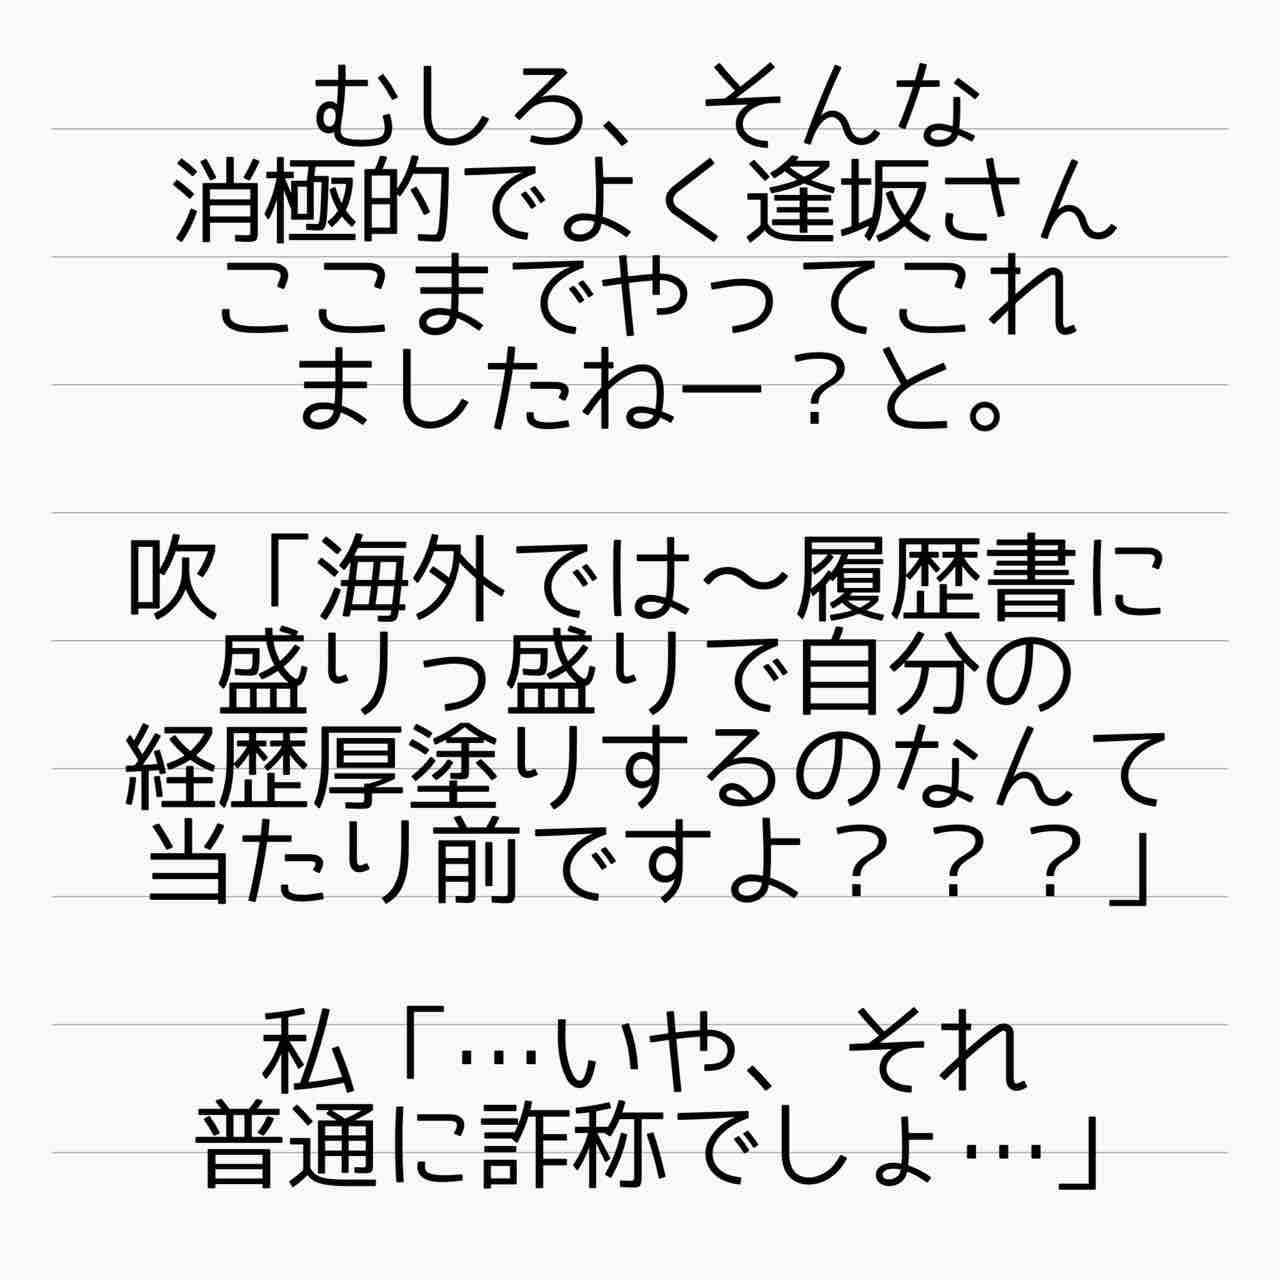 むしろ、そんな
消極的でよく逢坂さん
ここまでやってこれ
ましたねー？と。
吹「海外では〜履歴書に
盛りっ盛りで自分の
経歴厚塗りするのなんて
当たり前ですよ？？？」
私「…いや、それ
普通に詐称でしょ…」